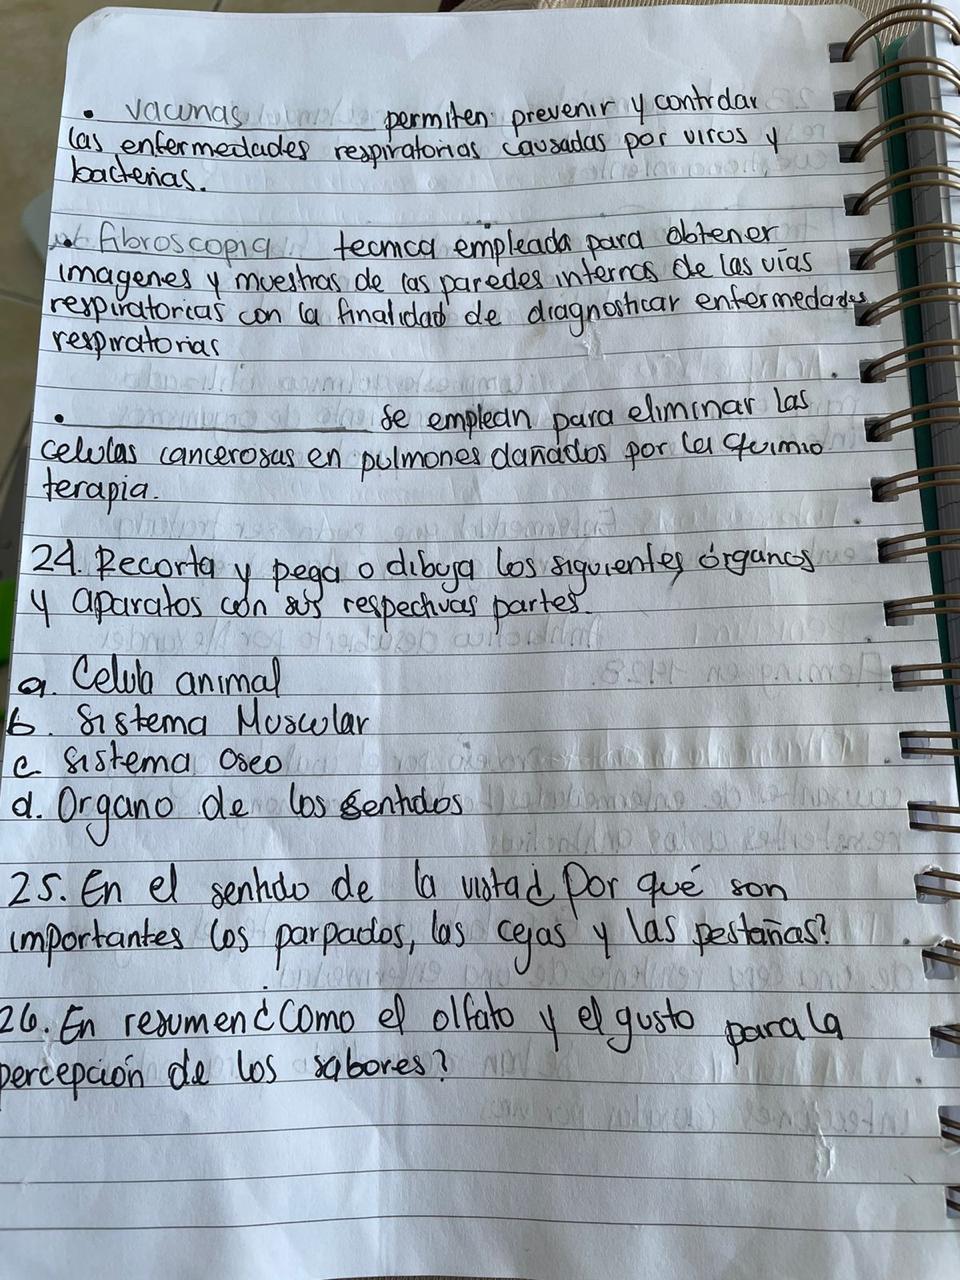 • vacunas ____________ permiten prevenir y controlar
las enfermedades respiratorias causadas por virus y
bacterias.
• fibroscopia tecnica empleada para obtener
imagenes y muestras de las paredes internas de las vías
respiratorias con la finalidad de diagnosticar enfermedades
respiratorias
• ____________ se emplean para eliminar las
celulas cancerosas en pulmones dañados por la quimio
terapia.
24. Recorta y pega o dibuja los siguientes órganos
y aparatos con sus respectivas partes.
a. Celula animal
b. Sistema Muscular
c Sistema Oseo
d. Organo de los sentidos
25. En el sentido de la vista¿ Por qué son
importantes los parpados, las cejas y las pestañas?
26. En resumen¿Como el olfato y el gusto para la
percepción de los sabores?